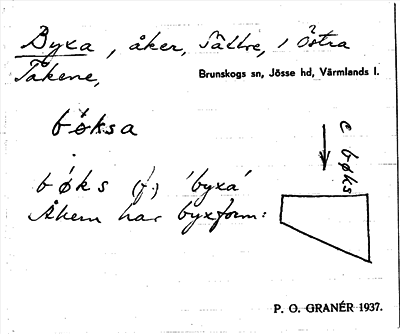 Byxa, åker, Sättre, i Östra
Tåkene,
Brunskogs sn, Jösse hd, Värmlands l.
bøksa
c bøks
bøks (f.) 'byxa'
Åkern har byxform:
P. O. GRANÉR 1937.